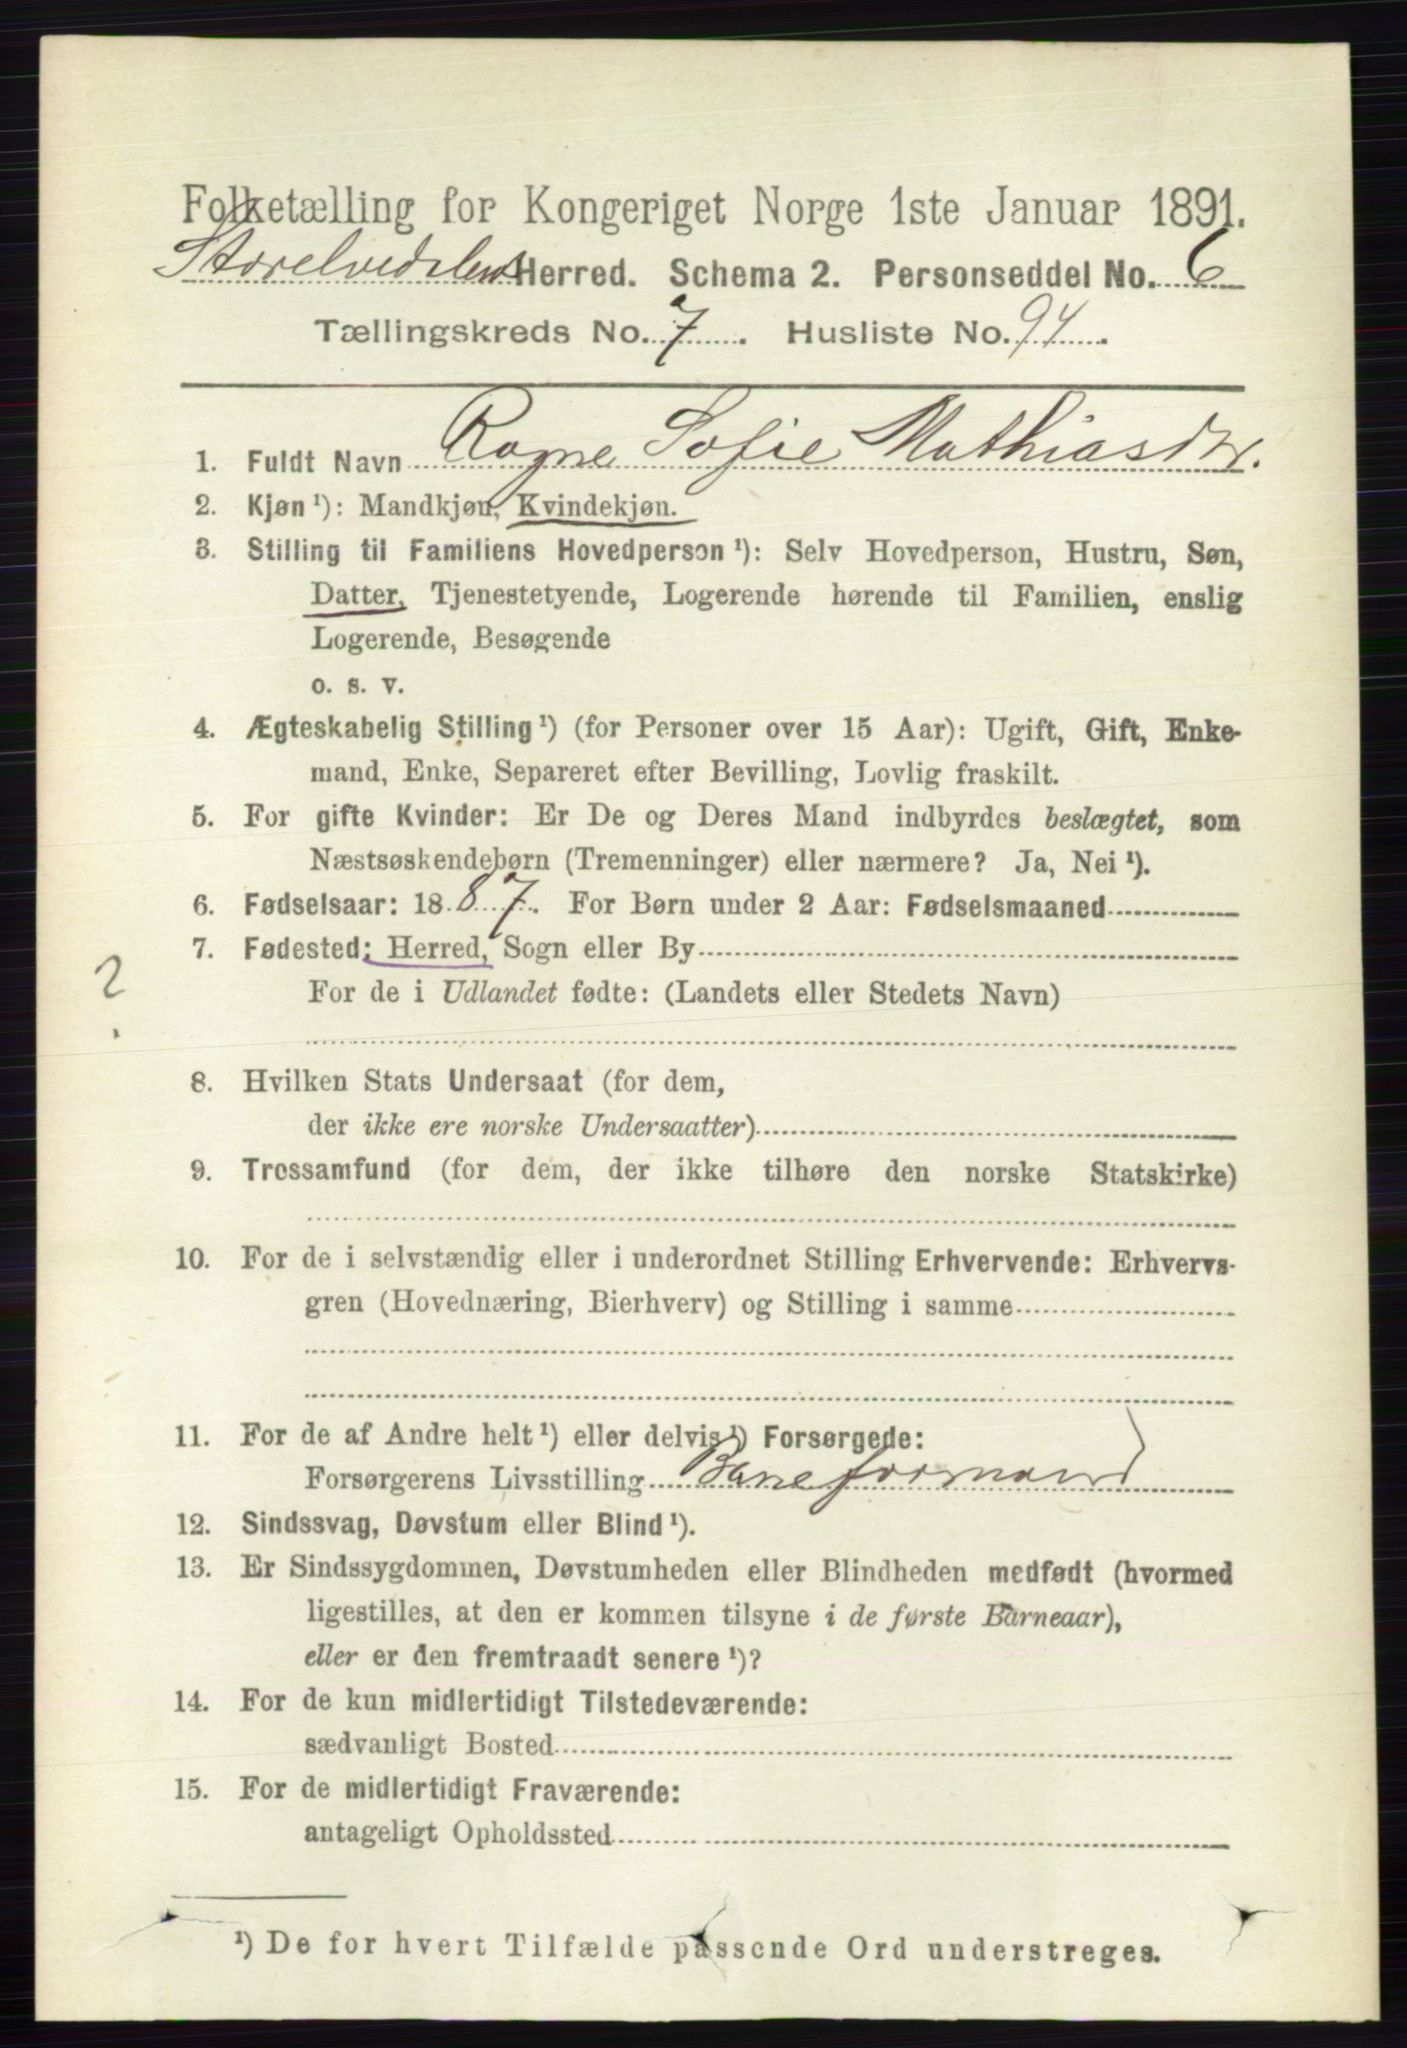 Folketælling for Kongeriget Norge 1ste Januar 1891.
Storelvedalens Herred. Schema 2. Personseddel No. 6
Tællingskreds No. 7. Husliste No. 94.
1. Fuldt Navn Ragne Sofie Mathiasdtr.
2. Kjøn ¹): Mandkjøn, Kvindekjøn.
3. Stilling til Familiens Hovedperson ¹): Selv Hovedperson, Hustru, Søn,
Datter, Tjenestetyende, Logerende hørende til Familien, enslig
Logerende, Besøgende
o. s. v.
4. Ægteskabelig Stilling ¹) (for Personer over 15 Aar): Ugift, Gift, Enke-
mand, Enke, Separeret efter Bevilling, Lovlig fraskilt.
5. For gifte Kvinder: Er De og Deres Mand indbyrdes beslægtet, som
Næstsøskendebørn (Tremenninger) eller nærmere? Ja, Nei ¹).
6. Fødselsaar: 1887. For Børn under 2 Aar: Fødselsmaaned
7. Fødested: Herred, Sogn eller By
?
For de i Udlandet fødte: (Landets eller Stedets Navn)
8. Hvilken Stats Undersaat (for dem,
der ikke ere norske Undersaatter)
9. Trossamfund (for dem, der ikke tilhøre den norske Statskirke)
10. For de i selvstændig eller i underordnet Stilling Erhvervende: Erhvervs-
gren (Hovednæring, Bierhverv) og Stilling i samme
11. For de af Andre helt ¹) eller delvis ¹) Forsørgede:
Forsørgerens Livsstilling Baneformand
12. Sindssvag, Døvstum eller Blind ¹).
13. Er Sindssygdommen, Døvstumheden eller Blindheden medfødt (hvormed
ligestilles, at den er kommen tilsyne i de første Barneaar),
eller er den fremtraadt senere ¹)?
14. For de kun midlertidigt Tilstedeværende:
sædvanligt Bosted
15. For de midlertidigt Fraværende:
antageligt Opholdssted
¹) De for hvert Tilfælde passende Ord understreges.